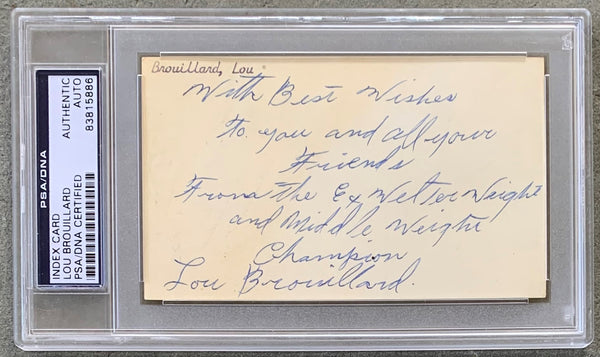 PSA/DNA
INDEX CARD
LOU BROUILLARD
PSA/DNA CERTIFIED
AUTHENTIC
AUTO
83815886
Brouillard, Lou
With Best Wishes
to you and all your
Friends
From the Ex Welter Weight
and Middle Weight
Champion
Lou Brouillard.